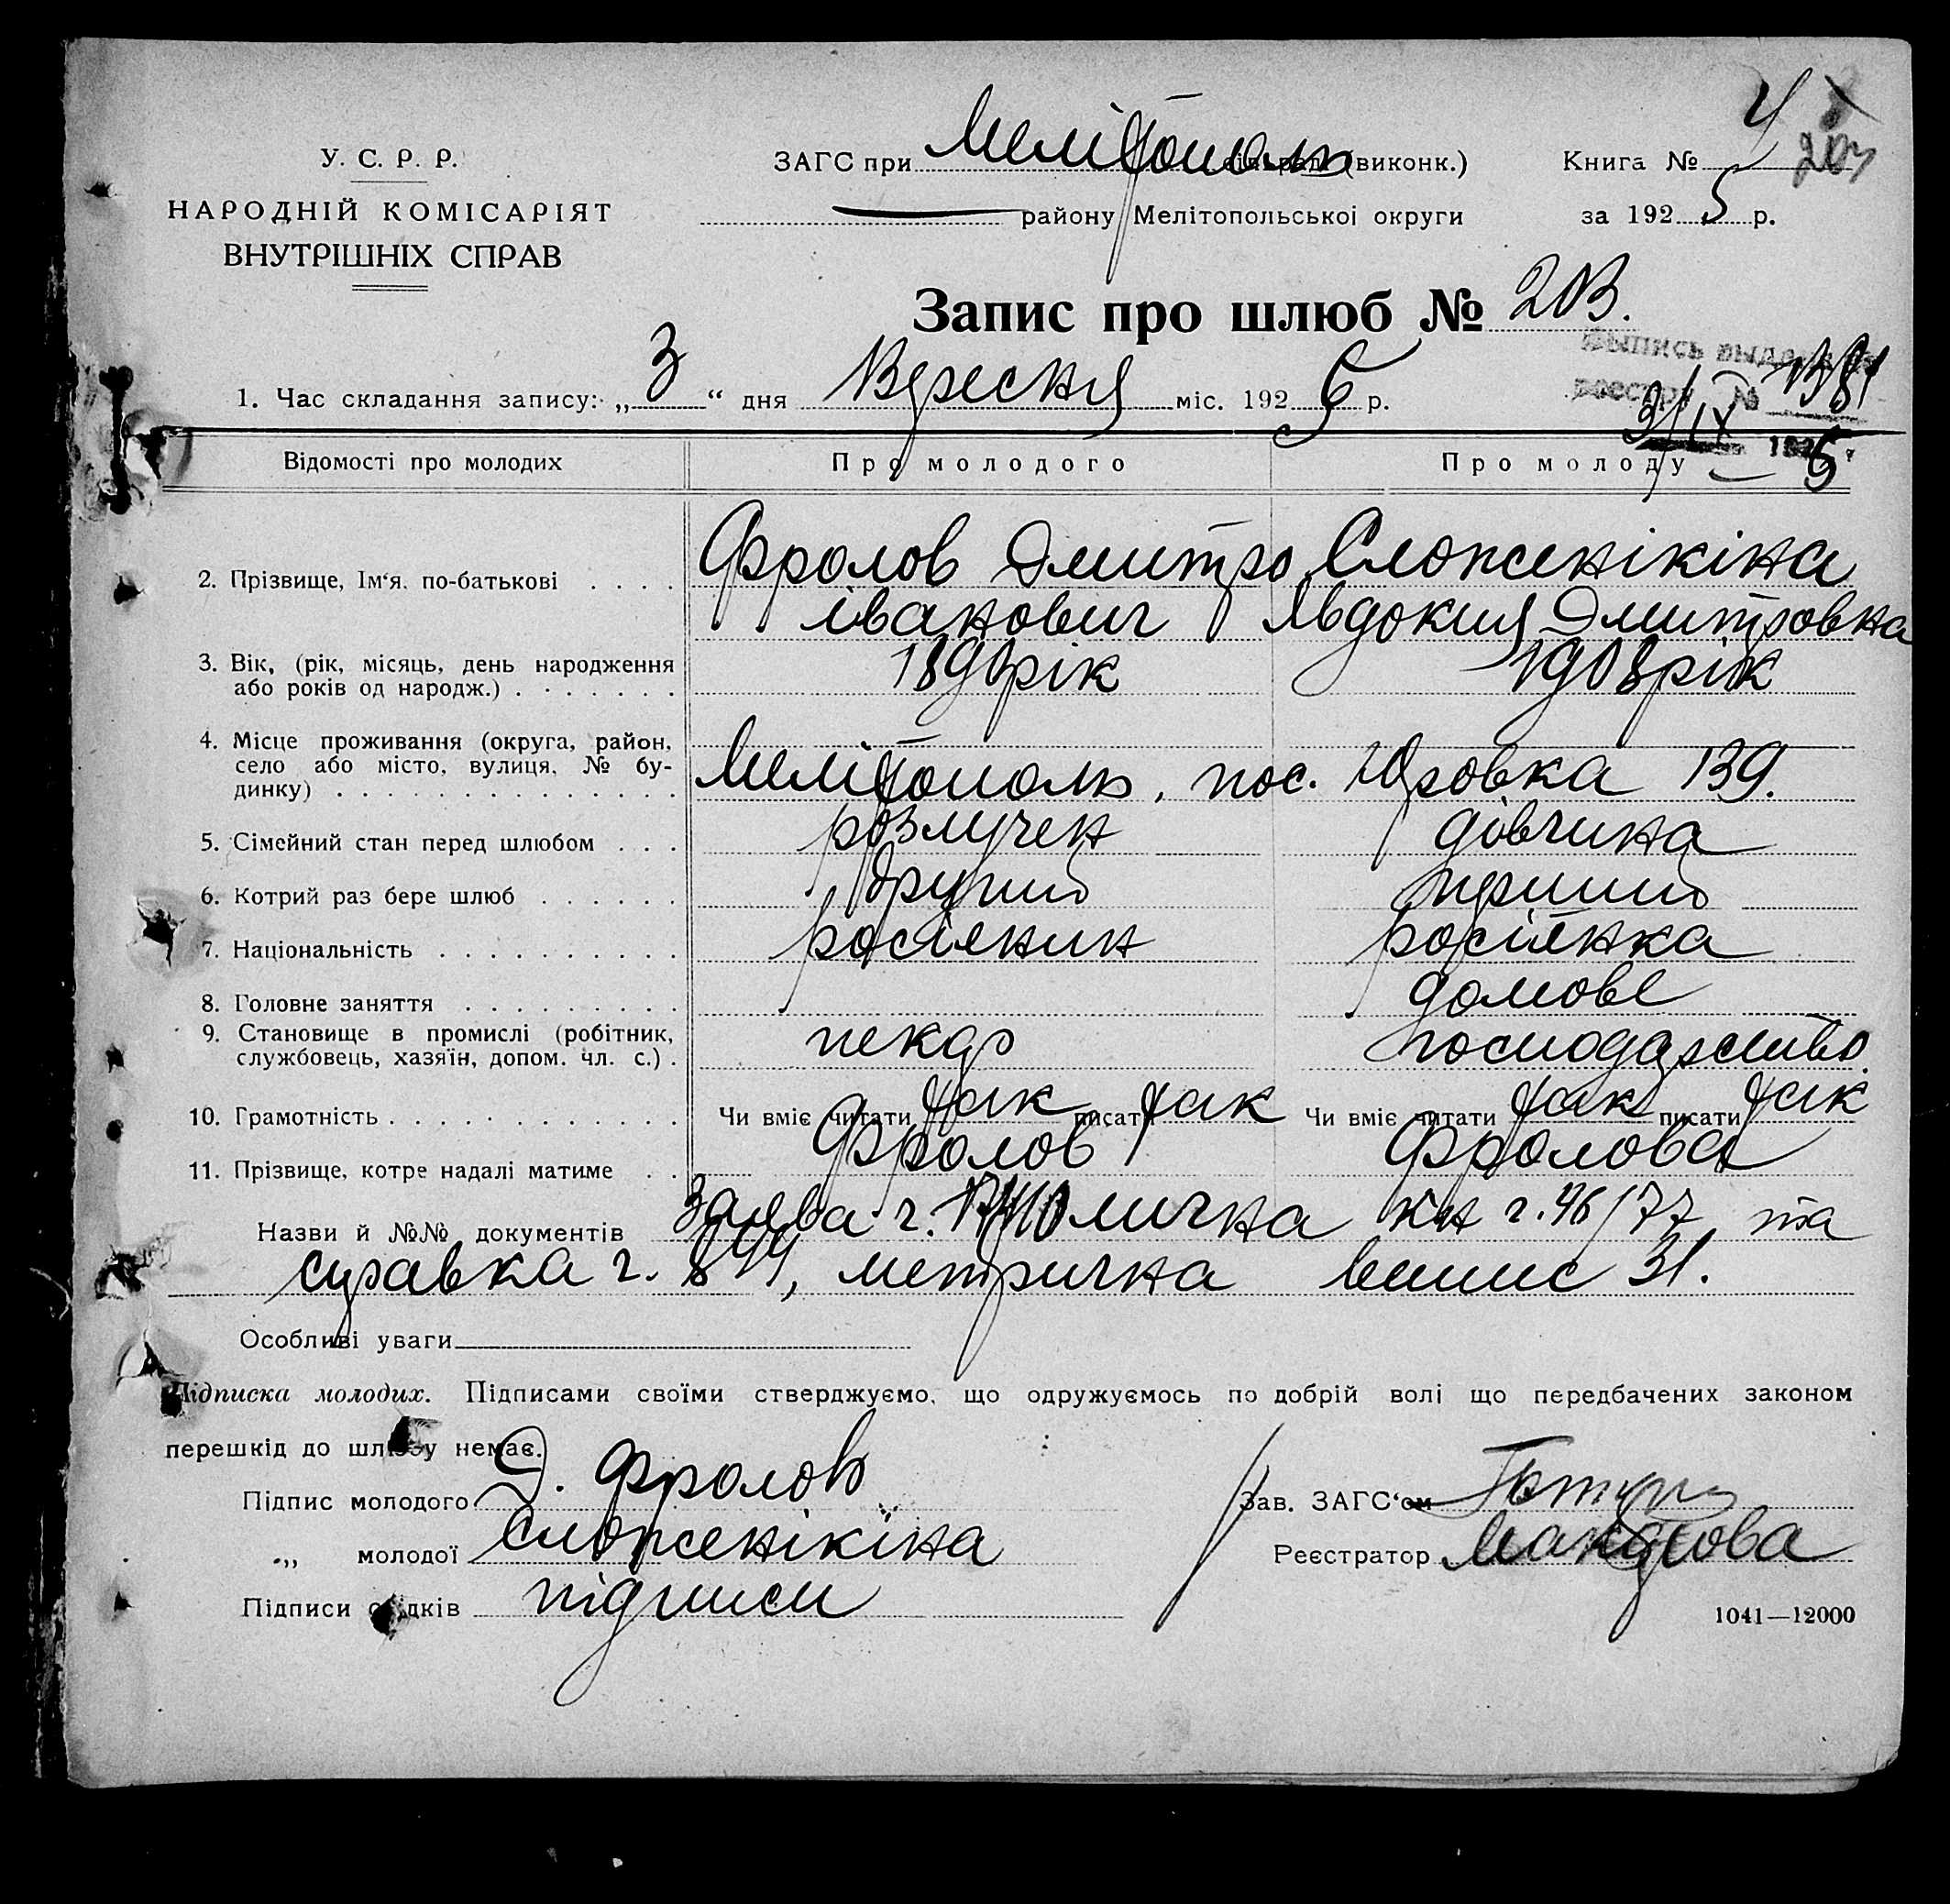 У. С. Р. Р.
НАРОДНІЙ КОМІСАРІЯТ
ВНУТРІШНІХ СПРАВ
ЗАГС при Мелітополь (виконк.)
району Мелітопольської округи
Книга № 4
203
за 1925 р.
Запис про шлюб № 203.
Выпись выдана
реестр № 1381
3/IX 1925
1. Час складання запису: „3“ дня Вересня міс. 1925 р.
Відомості про молодих Про молодого Про молоду
2. Прізвище, Ім'я. по-батькові Фролов Дмитро Сложенікіна
іванович Явдокия Дмитровна
3. Вік, (рік, місяць, день народження рік 1903 рік
або років од народж.)
4. Місце проживання (округа, район,
село або місто, вулиця, № бу-
динку) Мелітополь, пос. Юровка 139.
5. Сімейний стан перед шлюбом розлучен дівчина
6. Котрий раз бере шлюб другий перший
7. Національність росіянин росіянка
8. Головне заняття домове
9. Становище в промислі (робітник,
службовець, хазяїн, допом. чл. с.) пекар господарство
10. Грамотність Чи вміє читати так писати так Чи вміє читати так писати так
11. Прізвище, котре надалі матиме Фролов Фролова
Назви й №№ документів заява ч. лична кн ч. 46/77 та
справка ч. метрична випис 31.
Особливі уваги
Підписка молодих. Підписами своїми стверджуємо, що одружуємось по добрій волі що передбачених законом
перешкід до шлюбу немає.
Підпис молодого Д. Фролов
„ молодої Сложенікіна
Підписи свідків підписи
Зав. ЗАГС'ом
Реєстратор
1041—12000